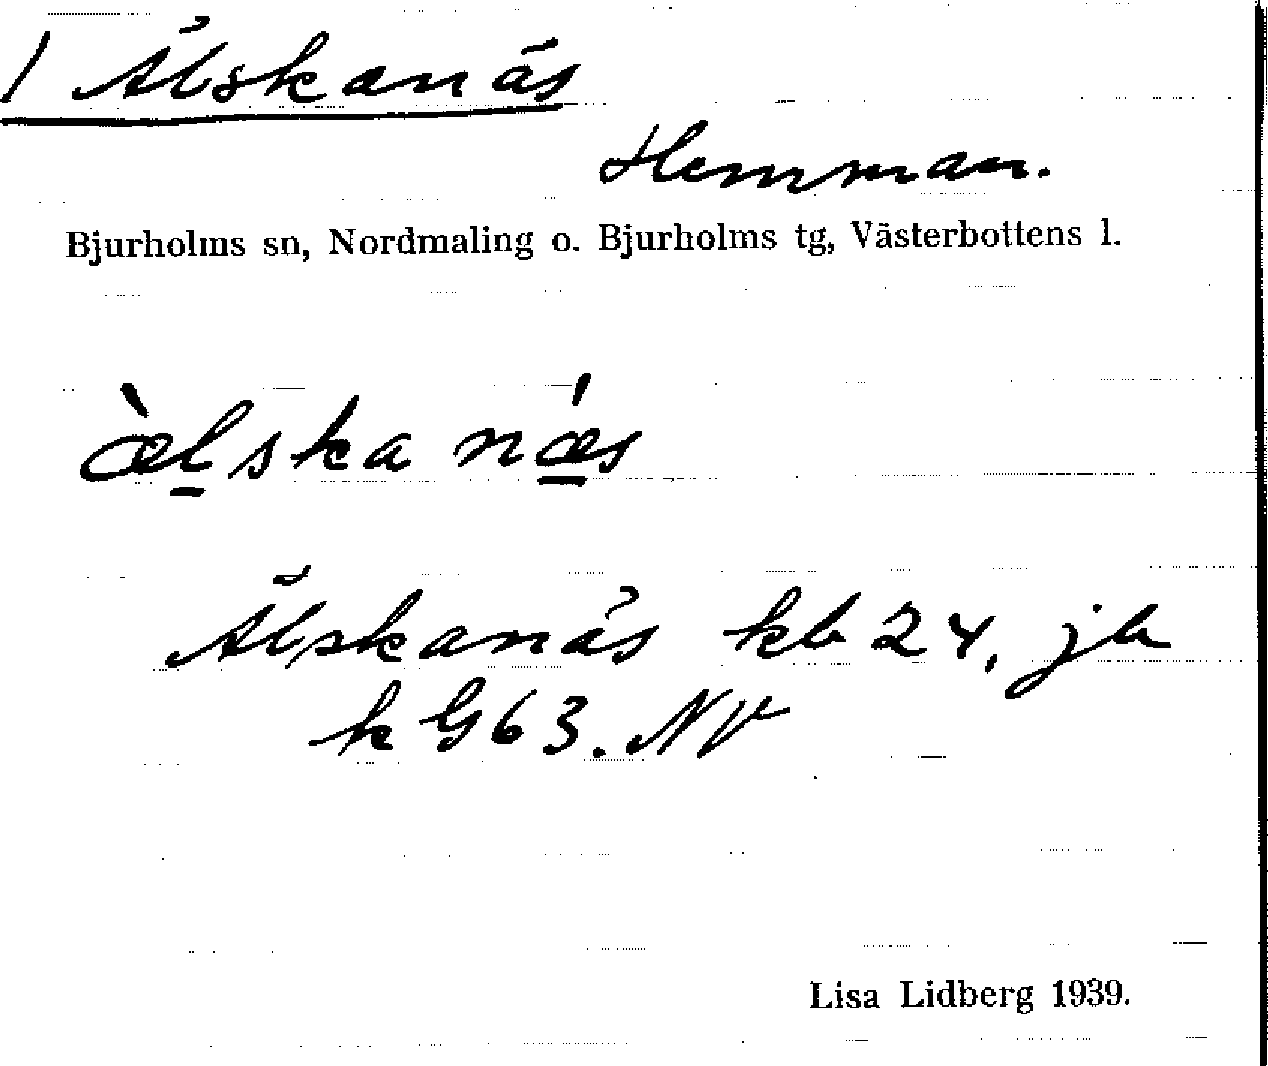 1 Älskanäs
Hemman.
Bjurholms sn, Nordmaling o. Bjurholms tg, Västerbottens l.
æ̀l̲skanǽ̲s
Älskanäs kb 24, jb
k G63. NV
Lisa Lidberg 1939.